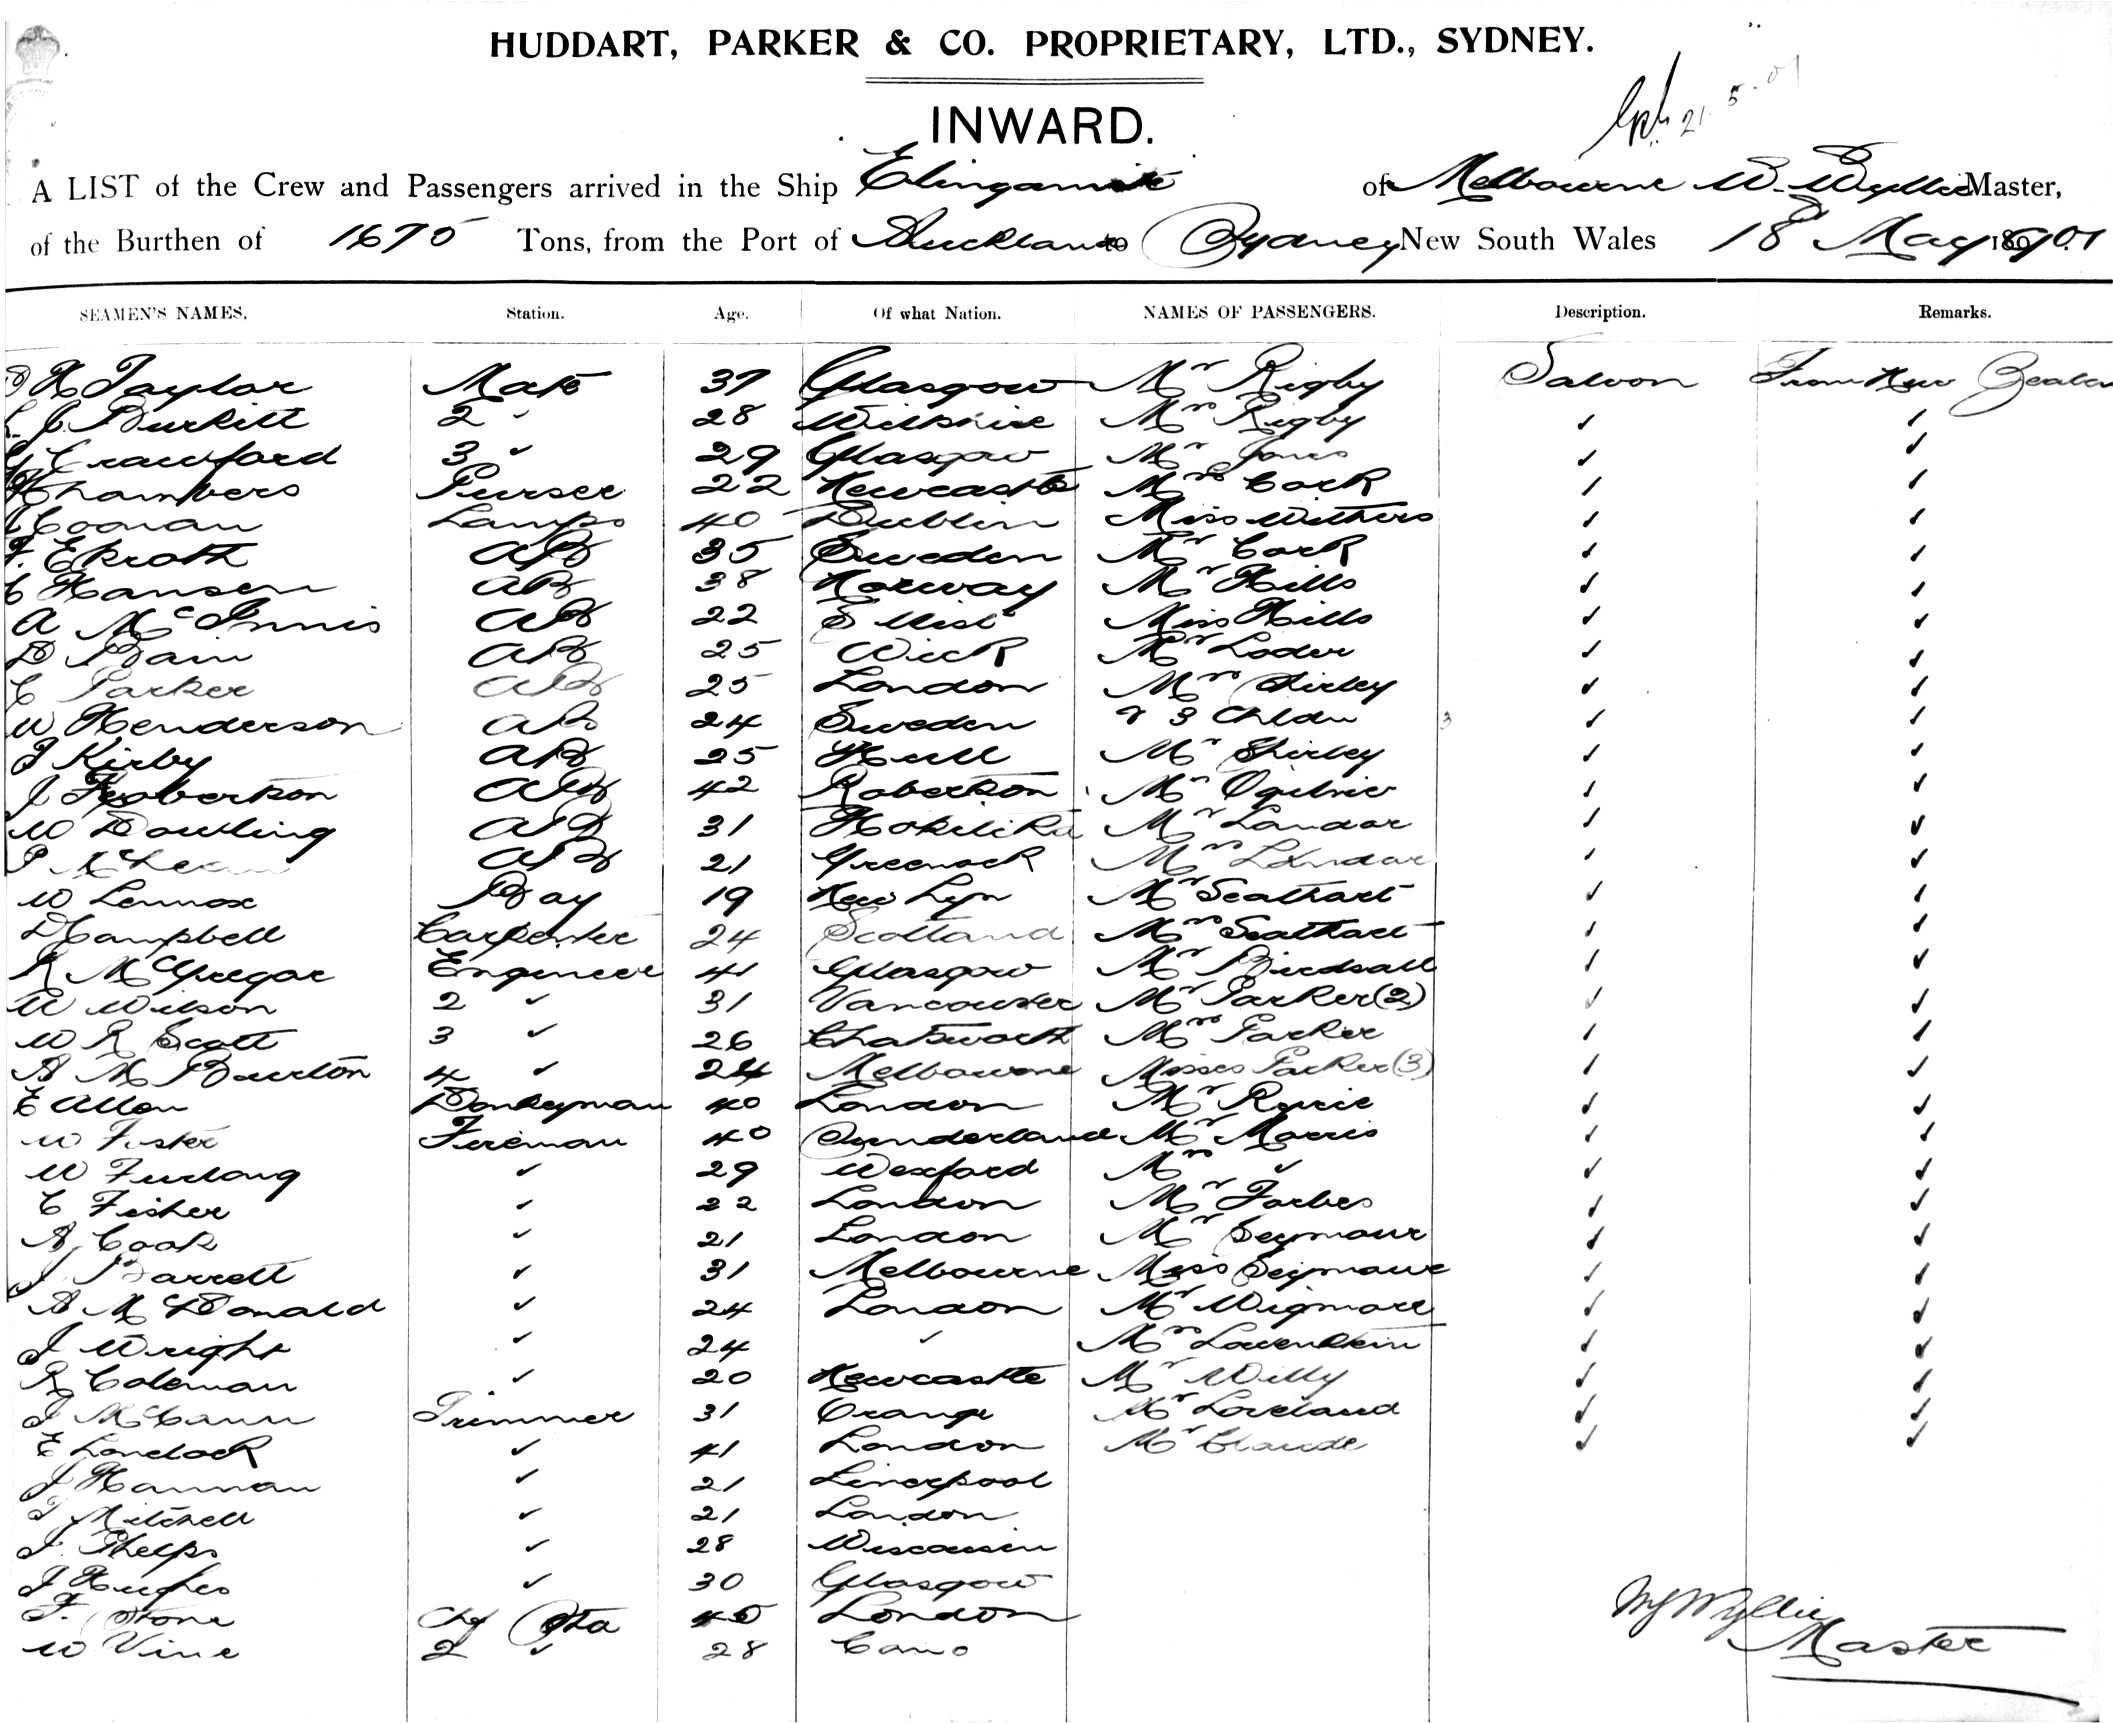 HUDDART, PARKER & CO. PROPRIETARY, LTD., SYDNEY.
INWARD.
21 . 5 . 01
A LIST of the Crew and Passengers arrived in the Ship Elingamite of Melbourne W. Wyllie Master,
of the Burthen of 1675 Tons, from the Port of Auckland to Sydney New South Wales 18 May 1901
SEAMEN'S NAMES. Station. Age. Of what Nation. NAMES OF PASSENGERS. Description. Remarks.
H Taylor Mate 37 Glasgow Mr Rigby Saloon From New Zealan
J Burkitt 2 ✓ 28 Wiltshire Mrs Rigby ✓ ✓
Crawford 3 ✓ 29 Glasgow Mr Jones ✓ ✓
Chambers Purser 22 Newcastle Mrs Cork ✓ ✓
Coonan Lamps 40 Dublin Miss Withers ✓ ✓
F. Ekroth AB 35 Sweden Mr Cork ✓ ✓
C Hansen AB 38 Norway Mr Hills ✓ ✓
A McInnis AB 22 S Uist Miss Hills ✓ ✓
D Bain AB 25 Wick Mr Loder ✓ ✓
C Parker AB 25 London Mrs Shirley ✓ ✓
W Henderson AB 24 Sweden & 3 Chldn 3 ✓ ✓
J Kirby AB 25 Hull Mr Shirley ✓ ✓
J Robertson AB 42 Robertson Mr Ogilvie ✓ ✓
W Dowling AB 31 Hokitika Mr Landar ✓ ✓
P McLean AB 21 Greenock Mrs Landar ✓ ✓
W Lennox Boy 19 New Lyn Mr Scathart ✓ ✓
D Campbell Carpenter 24 Scotland Mrs Scathart ✓ ✓
R McGregor Engineer 41 Glasgow Mr Birdsall ✓ ✓
W Wilson 2 ✓ 31 Vancouver Mr Parker (2) ✓ ✓
W R Scott 3 ✓ 26 Chatsworth Mrs Parker ✓ ✓
A M Burton 4 ✓ 24 Melbourne Misses Parker (3) ✓ ✓
E Allen Donkeyman 40 London Mr Ryrie ✓ ✓
W Foster Fireman 40 Sunderland Mr Morris ✓ ✓
W Furlong ✓ 29 Wexford Mrs ✓ ✓ ✓
C Fisher ✓ 22 London Mr Forbes ✓ ✓
A Cook ✓ 21 London Mr Seymour ✓ ✓
J Barrett ✓ 31 Melbourne Miss Seymour ✓ ✓
A McDonald ✓ 24 London Mr Wigmore ✓ ✓
J Wright ✓ 24 ✓ Mrs Lowenstein ✓ ✓
R Coleman ✓ 20 Newcastle Mr Willy ✓ ✓
J McCann Trimmer 31 Orange Mr Loveland ✓ ✓
E Lovelock ✓ 41 London Mr Claude ✓ ✓
J Hannan ✓ 21 Liverpool
J Mitchell ✓ 21 London
J. Phelps ✓ 28 Wisconsin
J Hughes ✓ 30 Glasgow
F. Stone 40 London
W Vine 2 ✓ 28
W Wyllie
Master